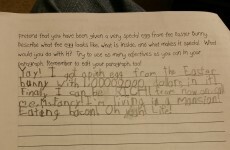 Pretend that you have been given a very special egg from the Easter Bunny.
Describe what the egg looks like, what is inside, and what makes it special. What
would you do with it? Try to use as many adjectives as you can in your
paragraph. Remember to edit your paragraph too!
Yay! I got an egg from the Easter
bunny with 1,000000000 dollars in it!
Finaly I can be RICH! from now on call
me fancy! I'm living in a mansion!
Eating bacon! Oh